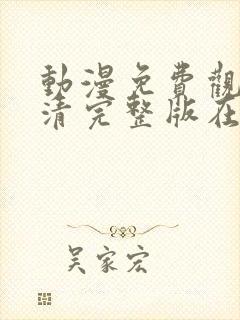 動漫免費觀
清完整版在
吴家宏